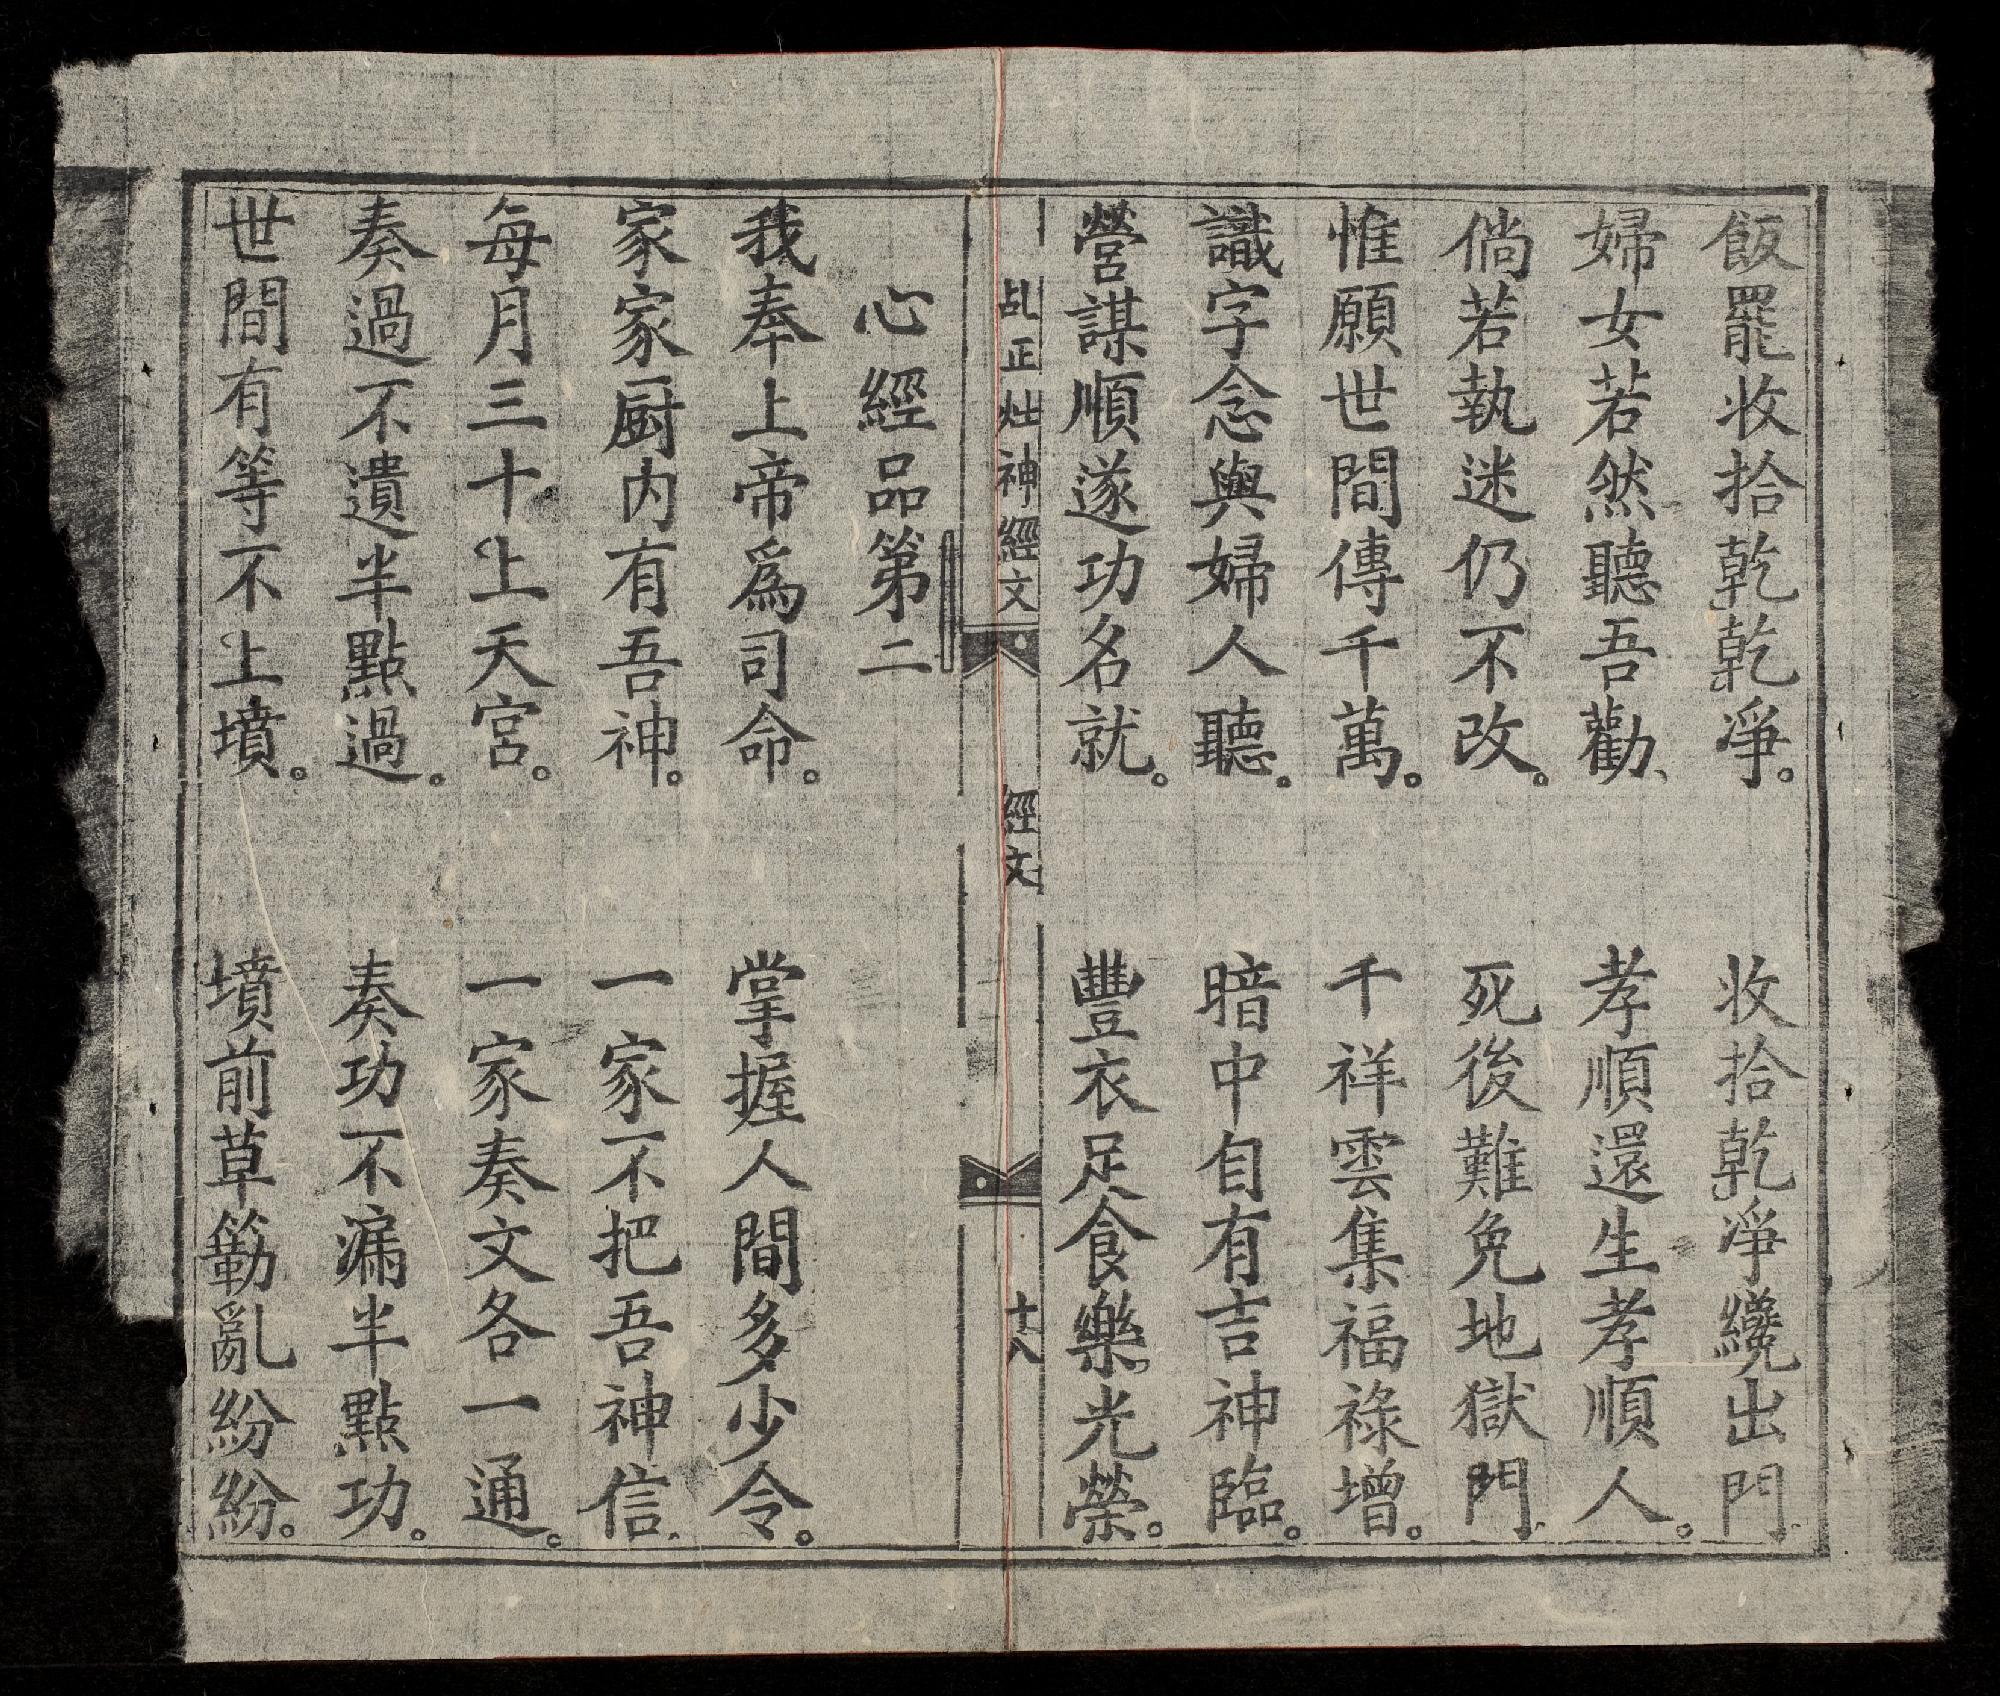 飯罷收拾乾乾凈。收拾乾凈纔出門
婦女若然聽吾勸、孝順還生孝順人。
倘若執迷仍不改。死後難免地獄門
惟願世間傳千萬。千祥雲集福祿增。
識字念與婦人聽。暗中自有吉神臨。
營謀順遂功名就。豐衣足食樂光榮。
乩正灶神經文 經文 十八
心經品第二
我奉上帝爲司命。掌握人間多少令。
家家厨内有吾神。一家不把吾神信
每月三十上天宮。一家奏文各一通。
奏過不遺半點過。奏功不漏半點功。
世間有等不上墳。墳前草簕亂紛紛。